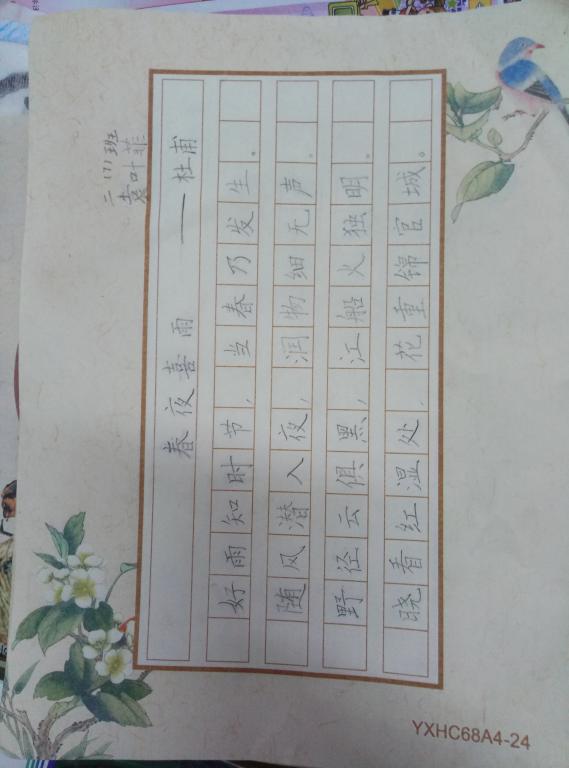 二(7)班
袁叶菲
春夜喜雨 ——杜甫
好雨知时节,当春乃发生。
随风潜入夜,润物细无声。
野径云俱黑,江船火独明。
晓看红湿处,花重锦官城。
YXHC68A4-24